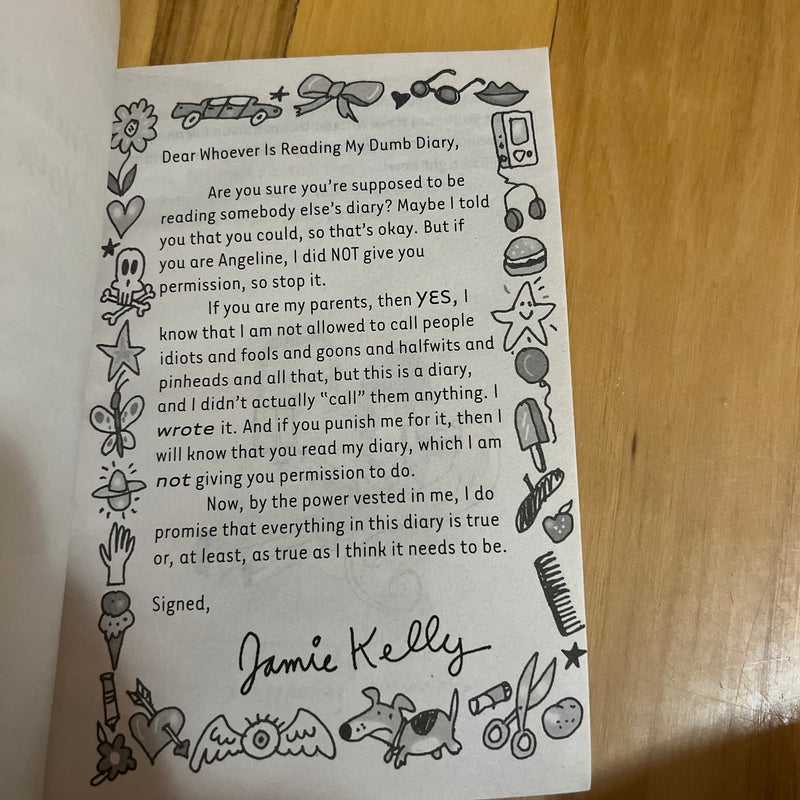 Dear Whoever Is Reading My Dumb Diary,
Are you sure you're supposed to be
reading somebody else's diary? Maybe I told
you that you could, so that's okay. But if
you are Angeline, I did NOT give you
permission, so stop it.
If you are my parents, then YES, I
know that I am not allowed to call people
idiots and fools and goons and halfwits and
pinheads and all that, but this is a diary,
and I didn't actually "call" them anything. I
wrote it. And if you punish me for it, then I
will know that you read my diary, which I am
not giving you permission to do.
Now, by the power vested in me, I do
promise that everything in this diary is true
or, at least, as true as I think it needs to be.
Signed,
Jamie Kelly